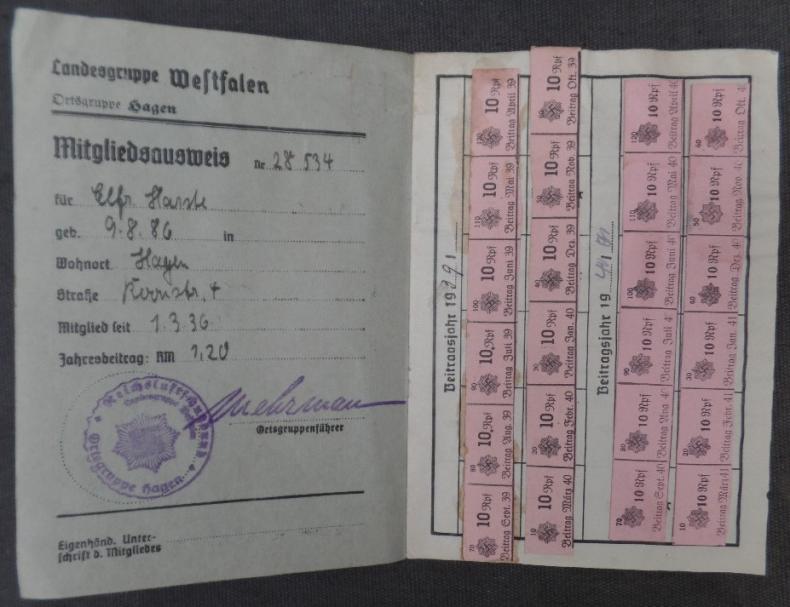 Landesgruppe Westfalen
Ortsgruppe Hagen
Mitgliedsausweis Nr 28534
für Elfr.
geb. 9.8.86 in
Wohnort Hagen
Straße 4
Mitglied seit 1.3.36
Jahresbeitrag: RM 1,20
Reichsluftschutzbund
Ortsgruppe Hagen
Ortsgruppenführer
Eigenhänd. Unter-
schrift d. Mitgliedes
Beitragsjahr 1939/
120 10 Rpf Beitrag April 39
110 10 Rpf Beitrag Mai 39
100 10 Rpf Beitrag Juni 39
90 10 Rpf Beitrag Juli 39
80 10 Rpf Beitrag Aug. 39
70 10 Rpf Beitrag Sept. 39
60 10 Rpf Beitrag Okt. 39
50 10 Rpf Beitrag Nov. 39
10 Rpf Beitrag Dez. 39
30 10 Rpf Beitrag Jan. 40
20 10 Rpf Beitrag Febr. 40
10 10 Rpf Beitrag März 40
Beitragsjahr 19
120 10 Rpf Beitrag April 4
110 10 Rpf Beitrag Mai 40
100 10 Rpf Beitrag Juni 4
90 10 Rpf Beitrag Juli 4
80 10 Rpf Beitrag Aug. 4
70 10 Rpf Beitrag Sept. 40
60 10 Rpf Beitrag Okt. 4
50 10 Rpf Beitrag Nov. 4
10 Rpf Beitrag Dez. 4
30 10 Rpf Beitrag Jan. 41
20 10 Rpf Beitrag Febr. 41
10 10 Rpf Beitrag März 41